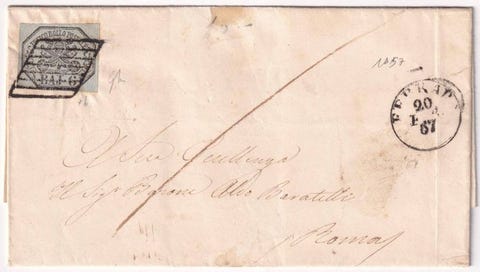 BAJ. 6
1857
FERRARA
20
57
A Sua Eccellenza
Il Sig.r Barone Aldo Baratelli
Roma